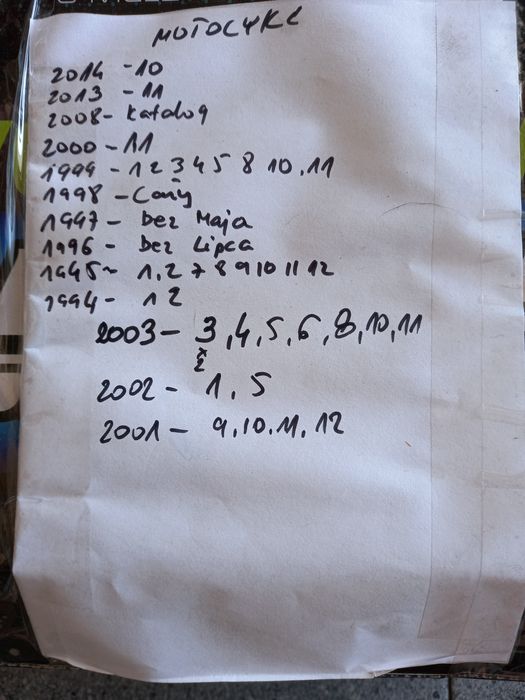 MOTOCYKL
2014 - 10
2013 - 11
2008 - katalog
2000 - 11
1999 - 1 2 3 4 5 8 10, 11
1998 - Cały
1997 - bez Maja
1996 - bez Lipca
1995 - 1, 2 7 8 9 10 11 12
1994 - 12
2003 - 3, 4, 5, 6, 8, 10, 11
x2
2002 - 1, 5
2001 - 9, 10, 11, 12